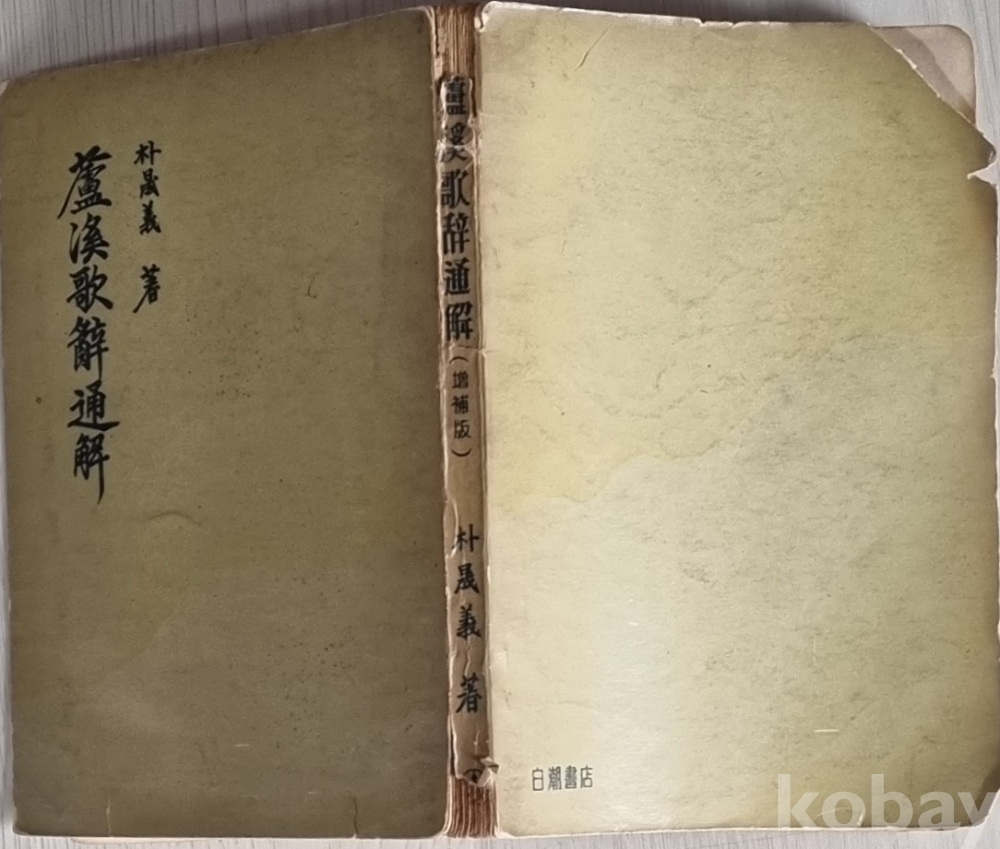 朴晟義 著
蘆溪歌辭通解
蘆溪歌辞通解(增補版)
朴晟義 著
白潮書店
kobay